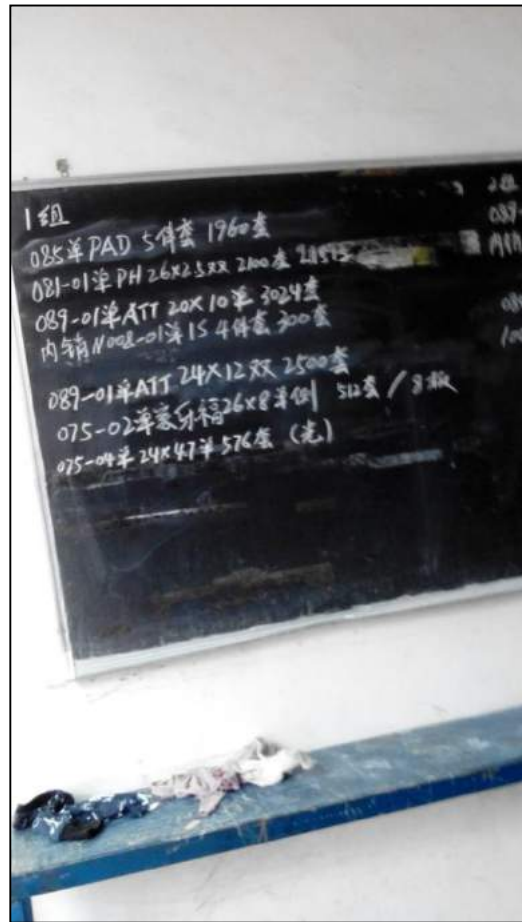 1组
085单PAD 5件套 1960套
081-01单PH 26X25双 2100套
089-01单ATT 20X10单 3024套
内销N008-01单IS 4件套 300套
089-01单ATT 24X12双 2500套
075-02单家乐福26X8单 512套 / 8板
075-04单 24X47单 576套 (光)
2组
089-